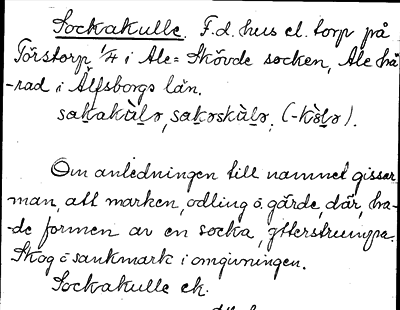 Sockakulle. F.d. hus el. torp på
Törstorp 1/4 i Ale=Skövde socken, Ale hä
-rad i Älfsborgs län.
sak̠akùl̠ə, sak̠əskùl̠ə, (-kòl̠ə).
Om anledningen till namnet gissar
man, att marken, odling o. gärde, där, ha-
de formen av en socka, ytterstrumpa.
Skog o sankmark i omgivningen.
Sockakulle ek.